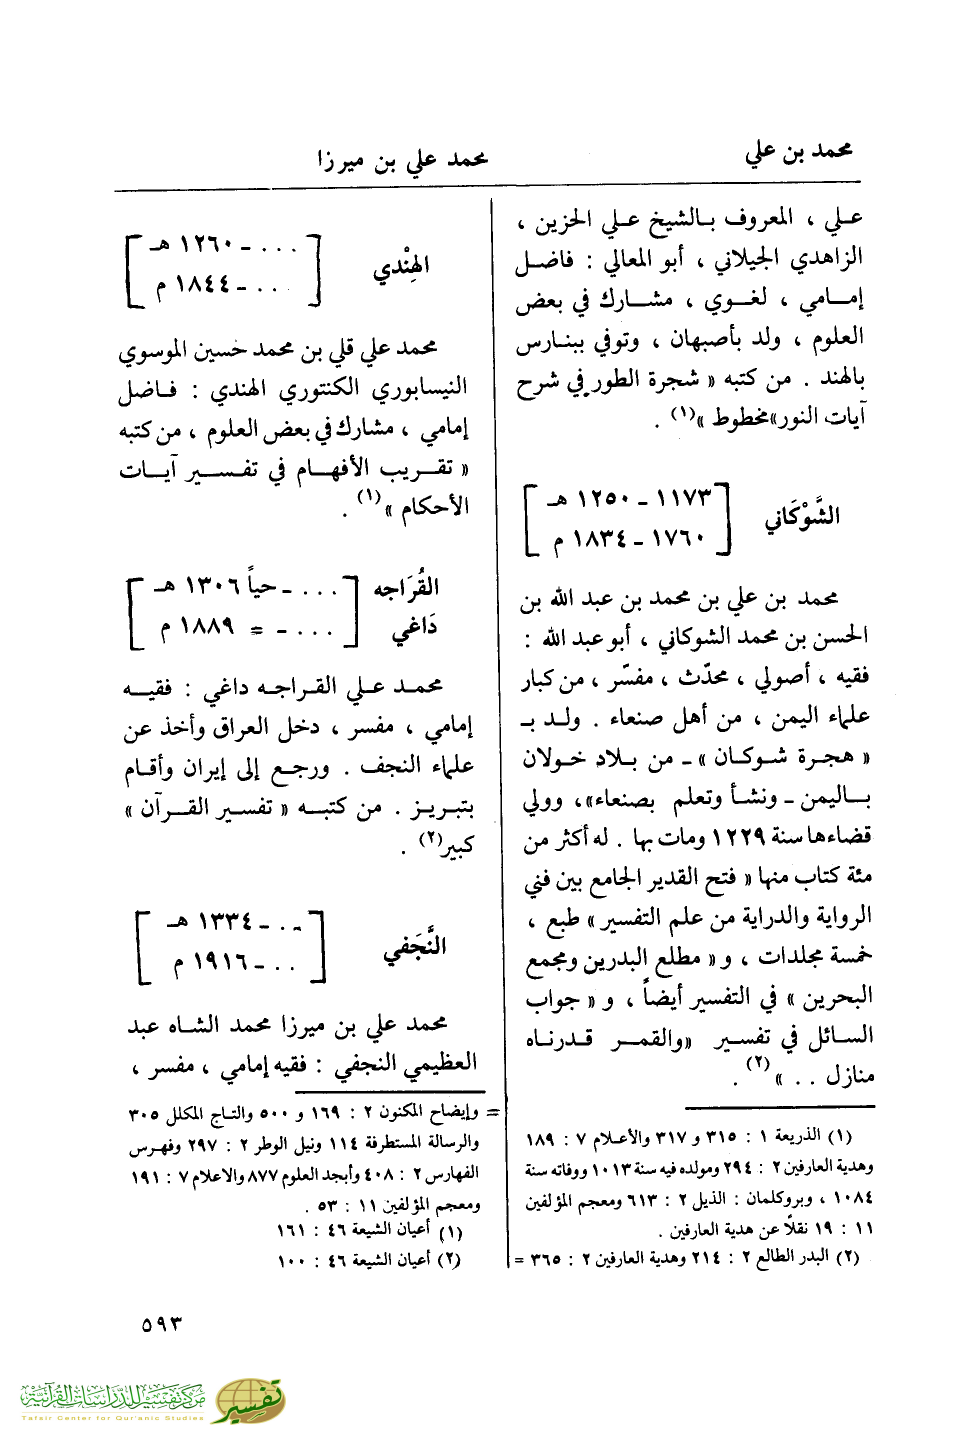 محمد بن علي
محمد علي بن ميرزا
علي ، المعروف بالشيخ علي الحزين ،
الزاهدي الجيلاني ، أبو المعالي : فاضل
إمامي ، لغوي ، مشارك في بعض
العلوم ، ولد بأصبهان ، وتوفي ببنارس
بالهند . من كتبه « شجرة الطور في شرح
آيات النور»مخطوط »(١) .
الشَّوْكَاني
[ ١١٧٣ - ١٢٥٠ هـ
١٧٦٠ - ١٨٣٤ م ]
محمد بن علي بن محمد بن عبد الله بن
الحسن بن محمد الشوكاني ، أبو عبد الله :
فقيه ، أصولي ، محدّث ، مفسّر ، من كبار
علماء اليمن ، من أهل صنعاء . ولد بـ
« هجرة شوكان » - من بلاد خولان
باليمن - ونشأ وتعلم بصنعاء»، وولي
قضاءها سنة ١٢٢٩ ومات بها . له أكثر من
مئة كتاب منها « فتح القدير الجامع بين فني
الرواية والدراية من علم التفسير » طبع ،
خمسة مجلدات ، و « مطلع البدرين ومجمع
البحرين » في التفسير أيضاً ، و « جواب
السائل في تفسير «والقمر قدرناه
منازل . . » (٢) .
(١) الذريعة ١ : ٣١٥ و ٣١٧ والأعلام ٧ : ١٨٩
وهدية العارفين ٢ : ٢٩٤ ومولده فيه سنة ١٠١٣ ووفاته سنة
١٠٨٤ ، وبروكلمان : الذيل ٢ : ٦١٣ ومعجم المؤلفين
١١ : ١٩ نقلاً عن هدية العارفين .
(٢) البدر الطالع ٢ : ٢١٤ وهدية العارفين ٢ : ٣٦٥ =
الهِنْدي
[ . . . - ١٢٦٠ هـ
. . . - ١٨٤٤ م ]
محمد علي قلي بن محمد حسين الموسوي
النيسابوري الكنتوري الهندي : فاضل
إمامي ، مشارك في بعض العلوم ، من كتبه
« تقريب الأفهام في تفسير آيات
الأحكام »(١) .
القُرَاجه
دَاغي
[ . . . - حياً ١٣٠٦ هـ
. . . - = ١٨٨٩ م ]
محمد علي القراجه داغي : فقيه
إمامي ، مفسر ، دخل العراق وأخذ عن
علماء النجف . ورجع إلى إيران وأقام
بتبريز . من كتبه « تفسير القرآن »
كبير(٢) .
النَّجَفي
[ . . . - ١٣٣٤ هـ
. . . - ١٩١٦ م ]
محمد علي بن ميرزا محمد الشاه عبد
العظيمي النجفي : فقيه إمامي ، مفسر ،
= وإيضاح المكنون ٢ : ١٦٩ و ٥٠٠ والتاج المكلل ٣٠٥
والرسالة المستطرفة ١١٤ ونيل الوطر ٢ : ٢٩٧ وفهرس
الفهارس ٢ : ٤٠٨ وأبجد العلوم ٨٧٧ والاعلام ٧ : ١٩١
ومعجم المؤلفين ١١ : ٥٣ .
(١) أعيان الشيعة ٤٦ : ١٦١
(٢) أعيان الشيعة ٤٦ : ١٠٠
٥٩٣
مركز تفسير للدراسات القرآنية
Tafsir Center for Qur'anic Studies
تفسير